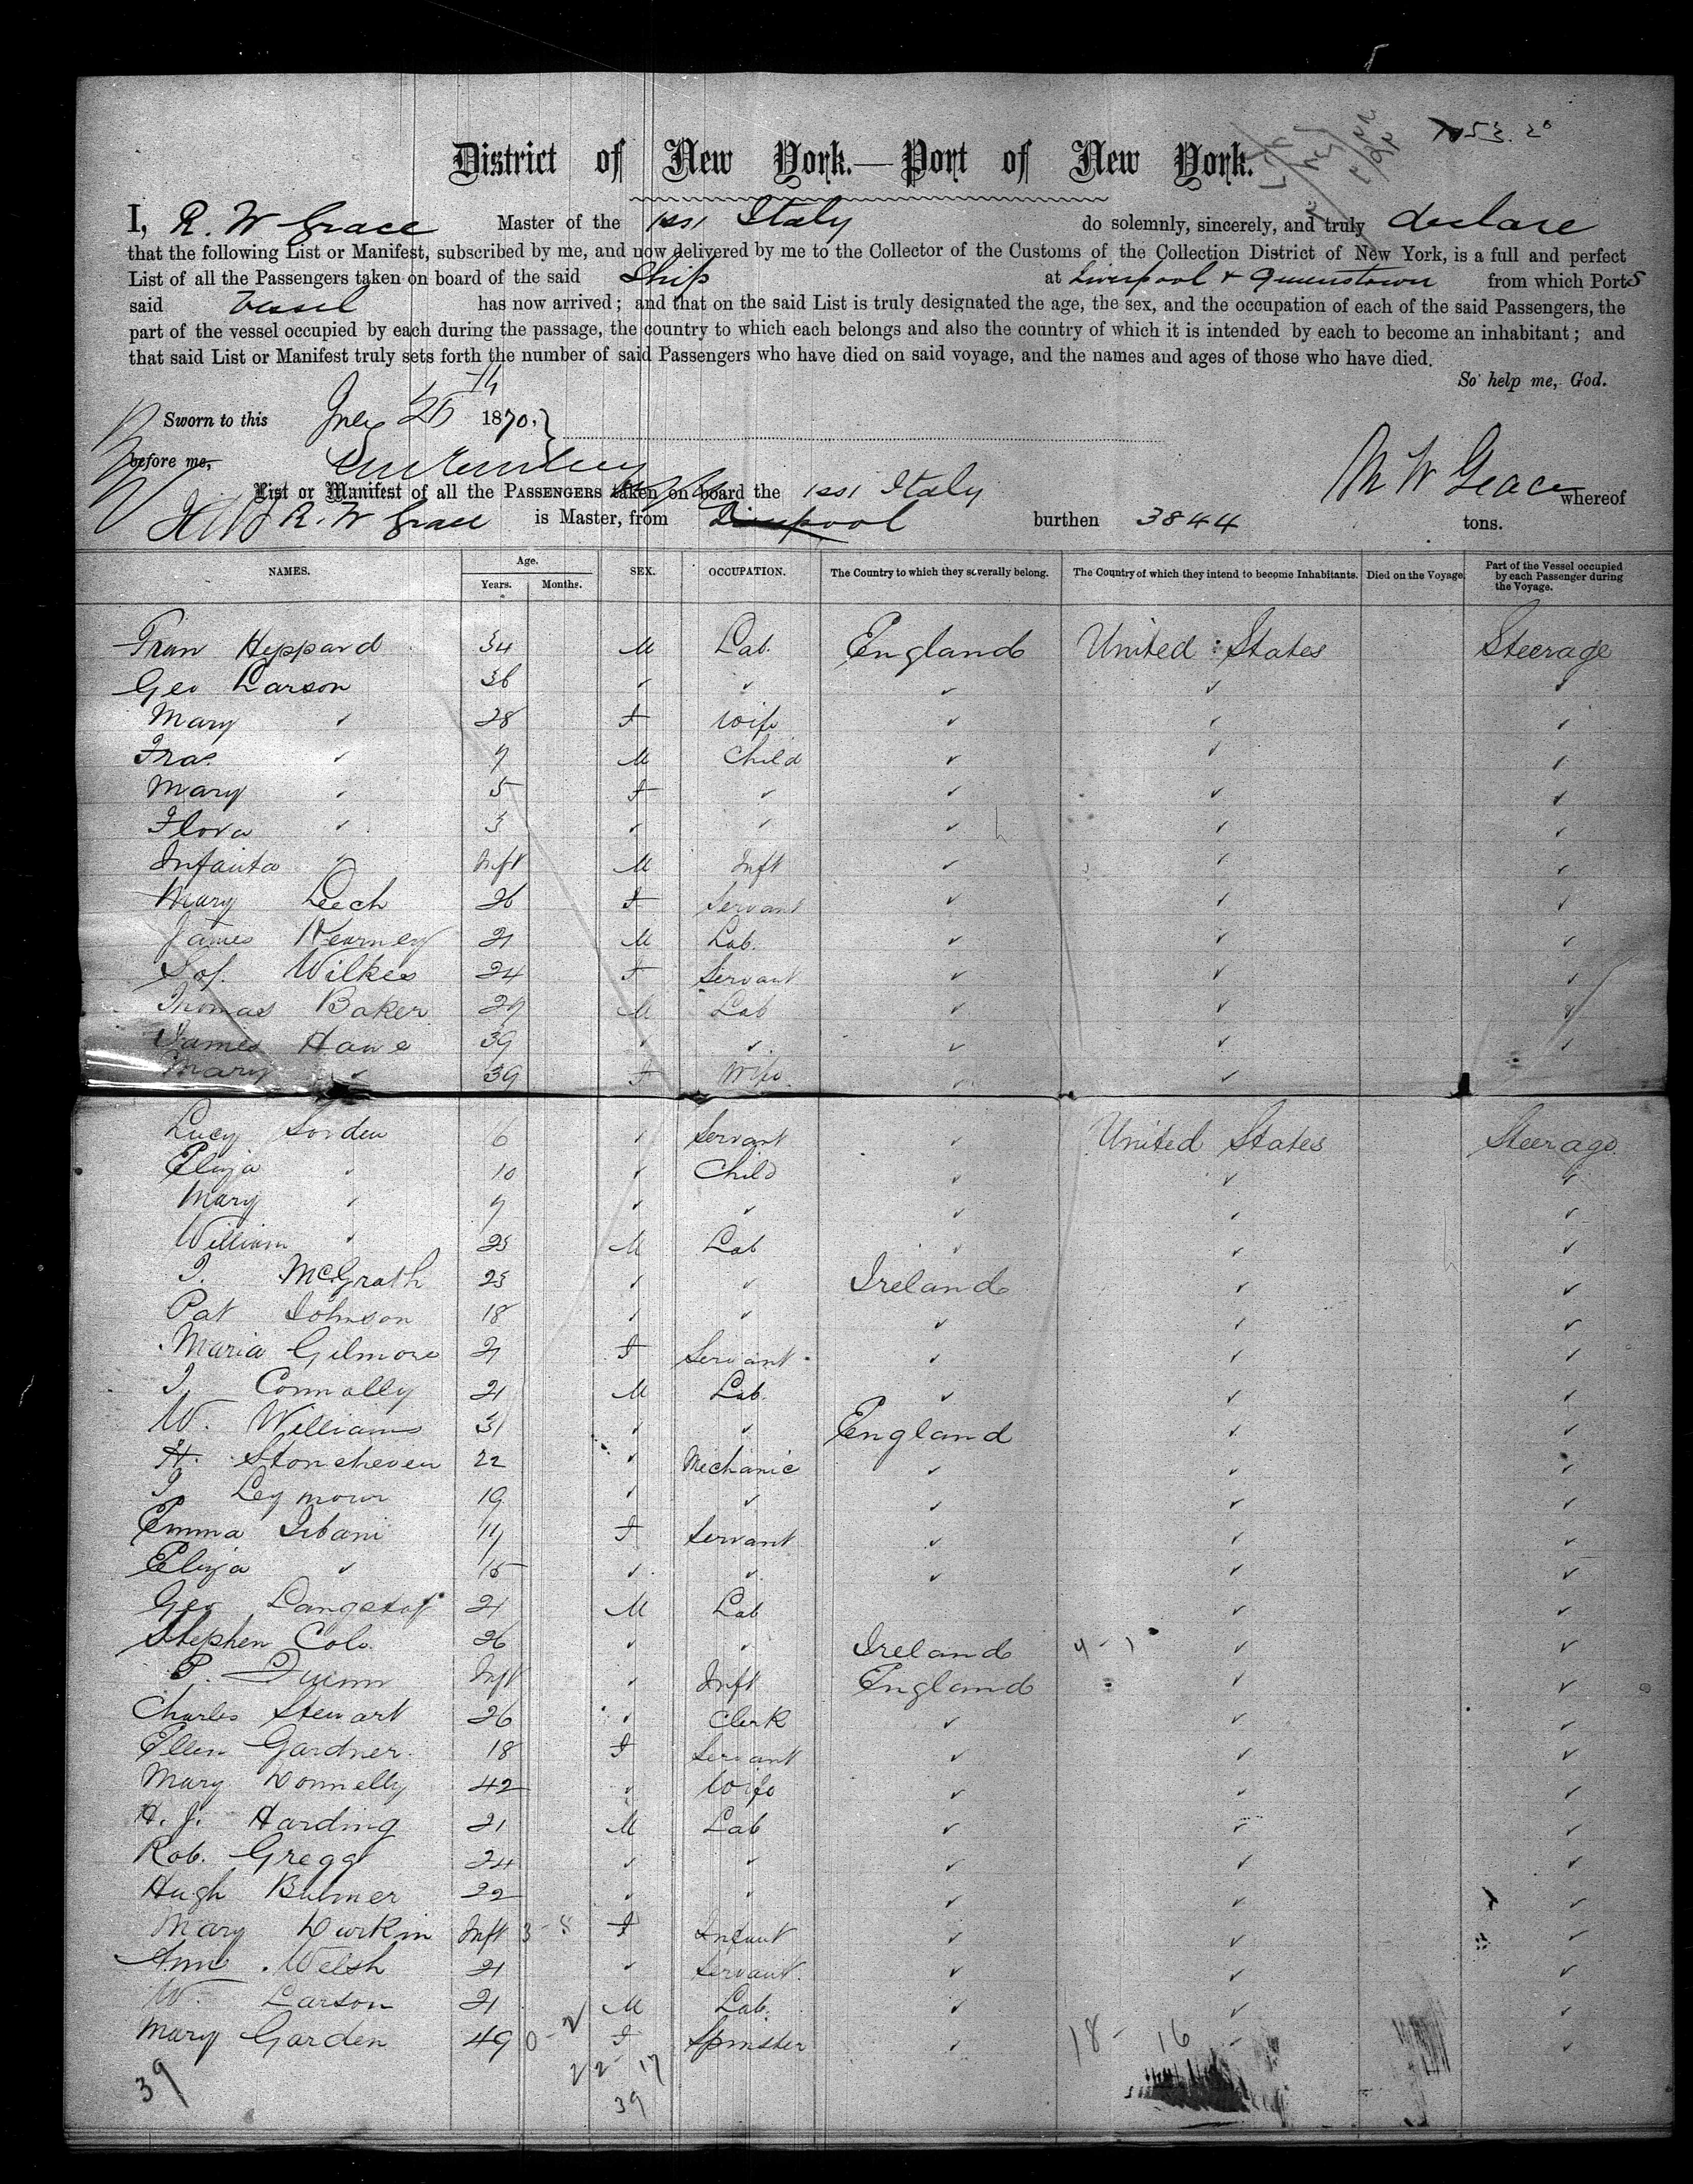 753. 20
District of New York.—Port of New York.
I, R. W Grace Master of the ss Italy do solemnly, sincerely, and truly declare
that the following List or Manifest, subscribed by me, and now delivered by me to the Collector of the Customs of the Collection District of New York, is a full and perfect
List of all the Passengers taken on board of the said Ship at Liverpool & Queenstown from which Ports
said Vessel has now arrived; and that on the said List is truly designated the age, the sex, and the occupation of each of the said Passengers, the
part of the vessel occupied by each during the passage, the country to which each belongs and also the country of which it is intended by each to become an inhabitant; and
that said List or Manifest truly sets forth the number of said Passengers who have died on said voyage, and the names and ages of those who have died.
So help me, God.
Sworn to this July 26th 1870,
before me,
R W Grace
List or Manifest of all the PASSENGERS taken on board the ss Italy whereof
R. W Grace is Master, from Liverpool burthen 3844 tons.
NAMES. Age. Years. Months. SEX. OCCUPATION. The Country to which they severally belong. The Country of which they intend to become Inhabitants. Died on the Voyage. Part of the Vessel occupied by each Passenger during the Voyage.
Fran Heppard 34 M Lab. England United States Steerage
Geo Larson 36 ✓ ✓ ✓ ✓ ✓
Mary ✓ 28 F Wife ✓ ✓ ✓
Fras. ✓ 7 M Child ✓ ✓ ✓
Mary ✓ 5 F ✓ ✓ ✓ ✓
Flora ✓ 3 ✓ ✓ ✓ ✓ ✓
Infanta ✓ Inft M Inft ✓ ✓ ✓
Mary Leech 26 F Servant ✓ ✓ ✓
James Kearney 21 M Lab. ✓ ✓ ✓
Sof. Wilkes 24 F Servant ✓ ✓ ✓
Thomas Baker 29 M Lab ✓ ✓ ✓
James Hawe 39 ✓ ✓ ✓ ✓ ✓
Mary ✓ 39 F Wife ✓ ✓
Lucy Sorden 6 ✓ Servant ✓ United States Steerage
Eliza ✓ 10 ✓ Child ✓ ✓ ✓
Mary ✓ 7 ✓ ✓ ✓ ✓ ✓
William ✓ 25 M Lab ✓ ✓ ✓
J. McGrath 25 ✓ ✓ Ireland ✓ ✓
Pat Johnson 18 ✓ ✓ ✓ ✓ ✓
Maria Gilmore 21 F Servant ✓ ✓ ✓
J. Connolly 21 M Lab. ✓ ✓ ✓
W. Williams 31 ✓ ✓ England ✓ ✓
H. Stoneheven 22 ✓ Mechanic ✓ ✓ ✓
J. Leymour 19 ✓ ✓ ✓ ✓ ✓
Emma Irbani 17 F Servant ✓ ✓ ✓
Eliza ✓ 15 ✓ ✓ ✓ ✓ ✓
Geo Langstof 21 M Lab ✓ ✓
Stephen Cole 26 ✓ ✓ Ireland 4 - 1 ✓ ✓
P. Quinn Inft ✓ Inft England ✓ ✓
Charles Stewart 26 ✓ Clerk ✓ ✓ ✓
Ellen Gardner 18 F Servant ✓ ✓ ✓
Mary Donnelly 42 ✓ Wife ✓ ✓ ✓
H. J. Harding 21 M Lab ✓ ✓ ✓
Rob. Gregg 24 ✓ ✓ ✓ ✓ ✓
Hugh Bulmer 22 ✓ ✓ ✓ ✓ ✓
Mary Durkin Inft 3 - 8 F Infant ✓ ✓ ✓
Ann Welsh 21 ✓ Servant ✓ ✓ ✓
W. Larson 21 M Lab. ✓ ✓ ✓
Mary Garden 49 0 - 2 F Spinster ✓ 18 - 16 ✓ ✓
39 22 - 17
39